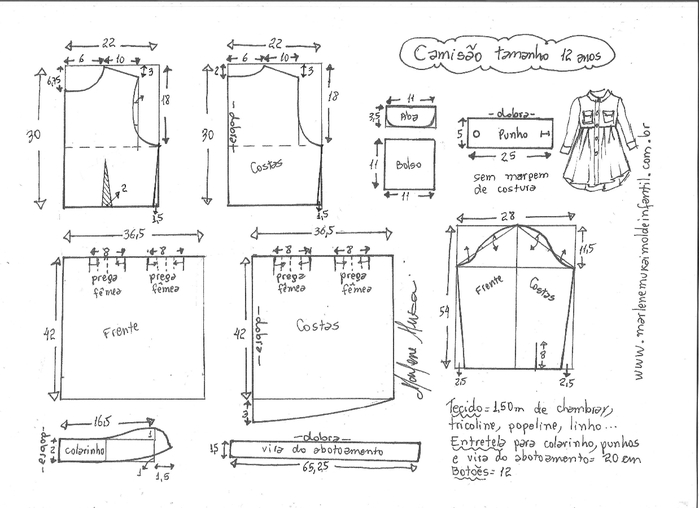 22
6 10
6,75
3
18
30
2
1,5
22
6 10
2
3
18
30
dobra
Costas
1,5
Camisão tamanho 12 anos
11
3,5
Aba
11
Bolso
11
dobra
5
Punho
25
sem margem
de costura
www.marlenemukaimoldeinfantil.com.br
36,5
8 8
prega
fêmea
prega
fêmea
42
Frente
36,5
8 8
prega
fêmea
prega
fêmea
42
dobra
Costas
Marlene Mukai
28
11,5
54
Frente
Costas
8
2,5
2,5
16,5
dobra
2
colarinho
1
1
1,5
dobra
vira do abotoamento
65,25
Tecido = 1,50m de chambray,
tricoline, popeline, linho...
Entretela para colarinho, punhos
e vira do abotoamento = 20 cm
Botões = 12